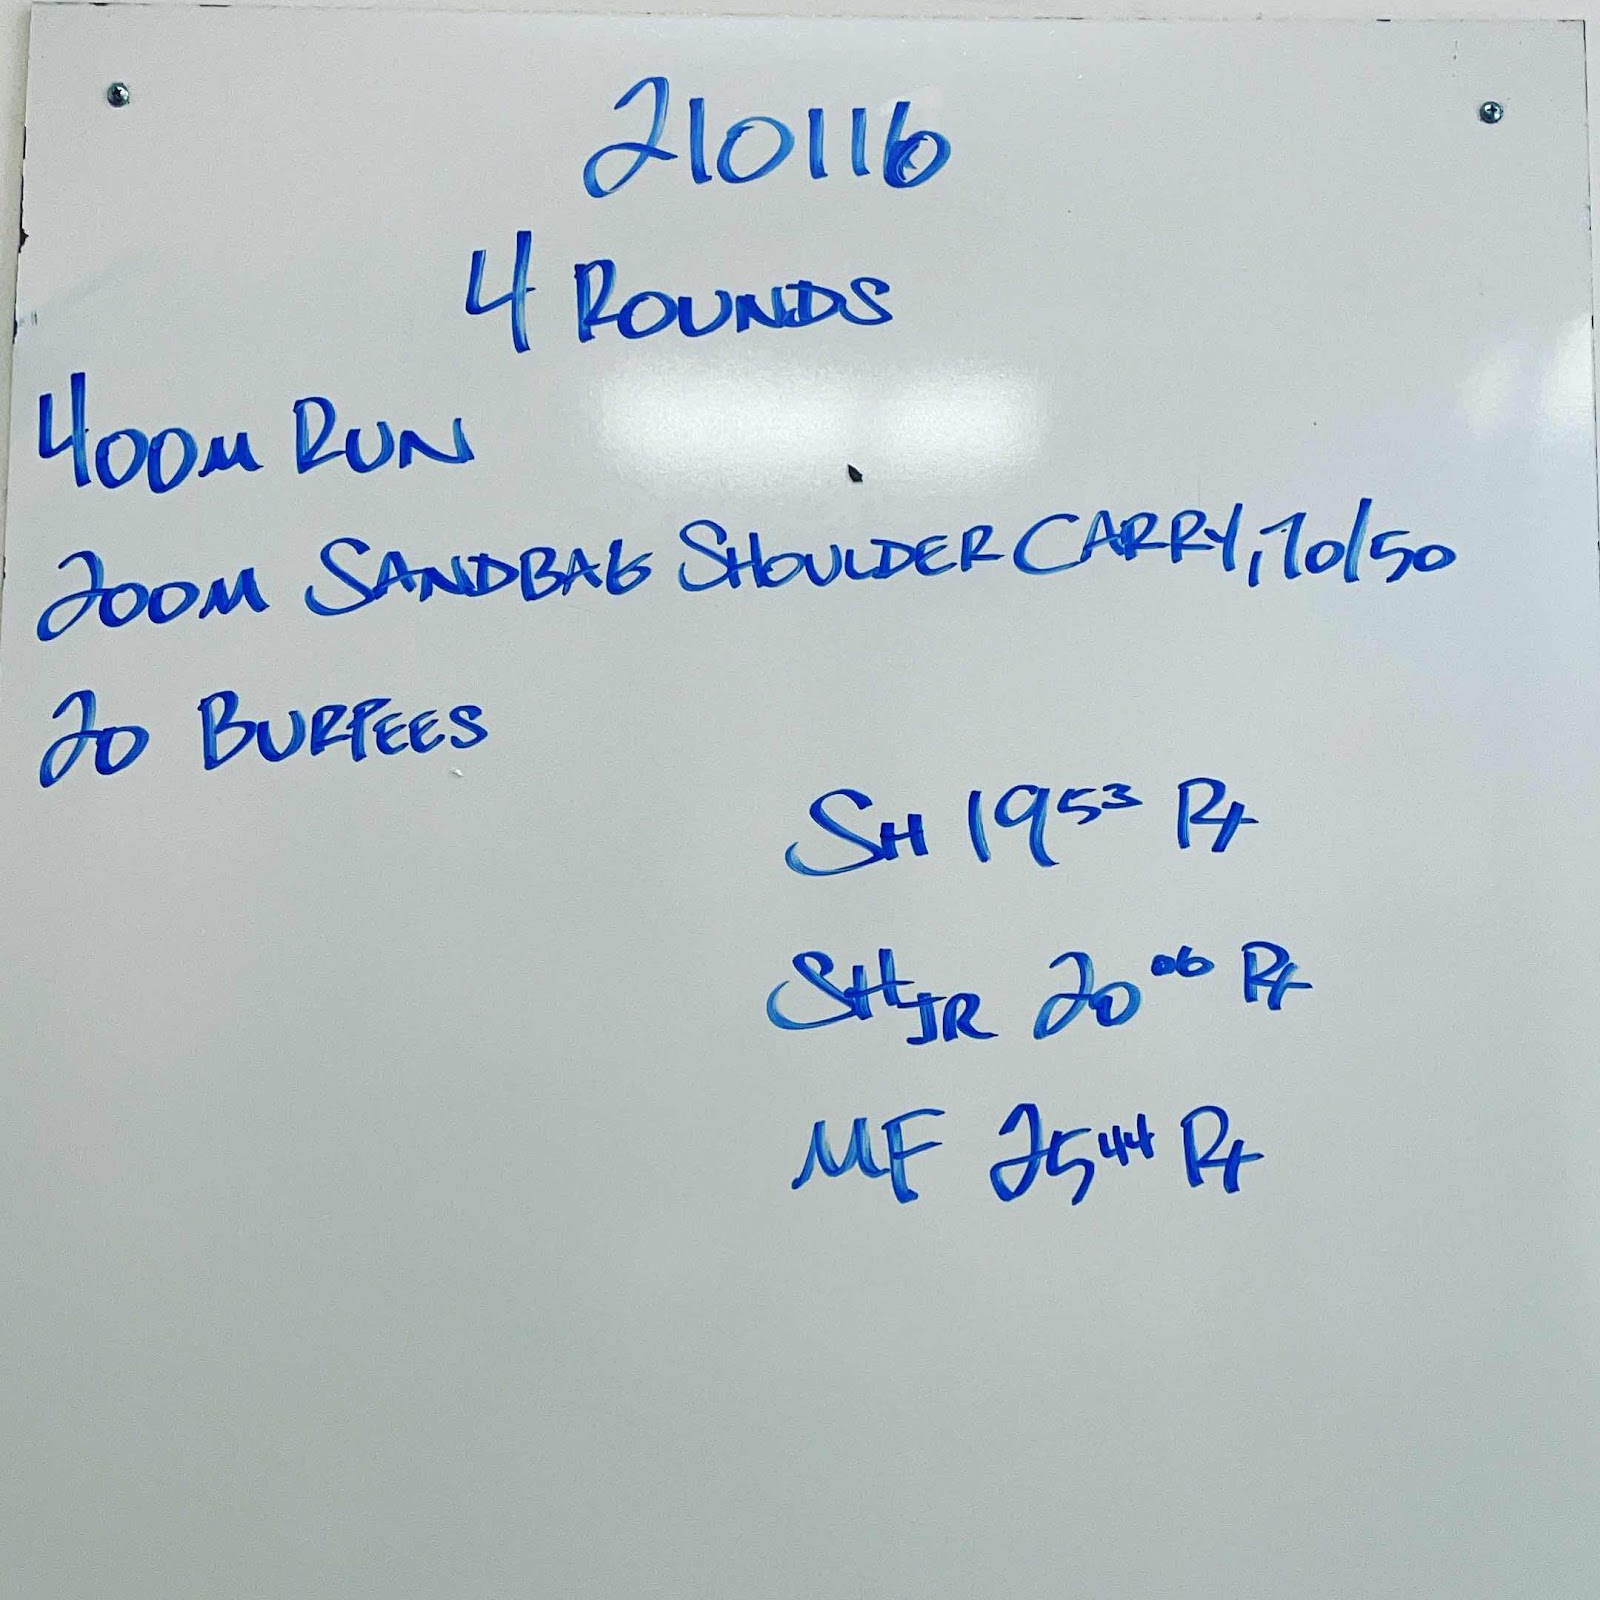 210116
4 ROUNDS
400M RUN
200M SANDBAG SHOULDER CARRY, 70/50
20 BURPEES
SH 19 53 Rx
SH JR 20 06 Rx
MF 25 44 Rx